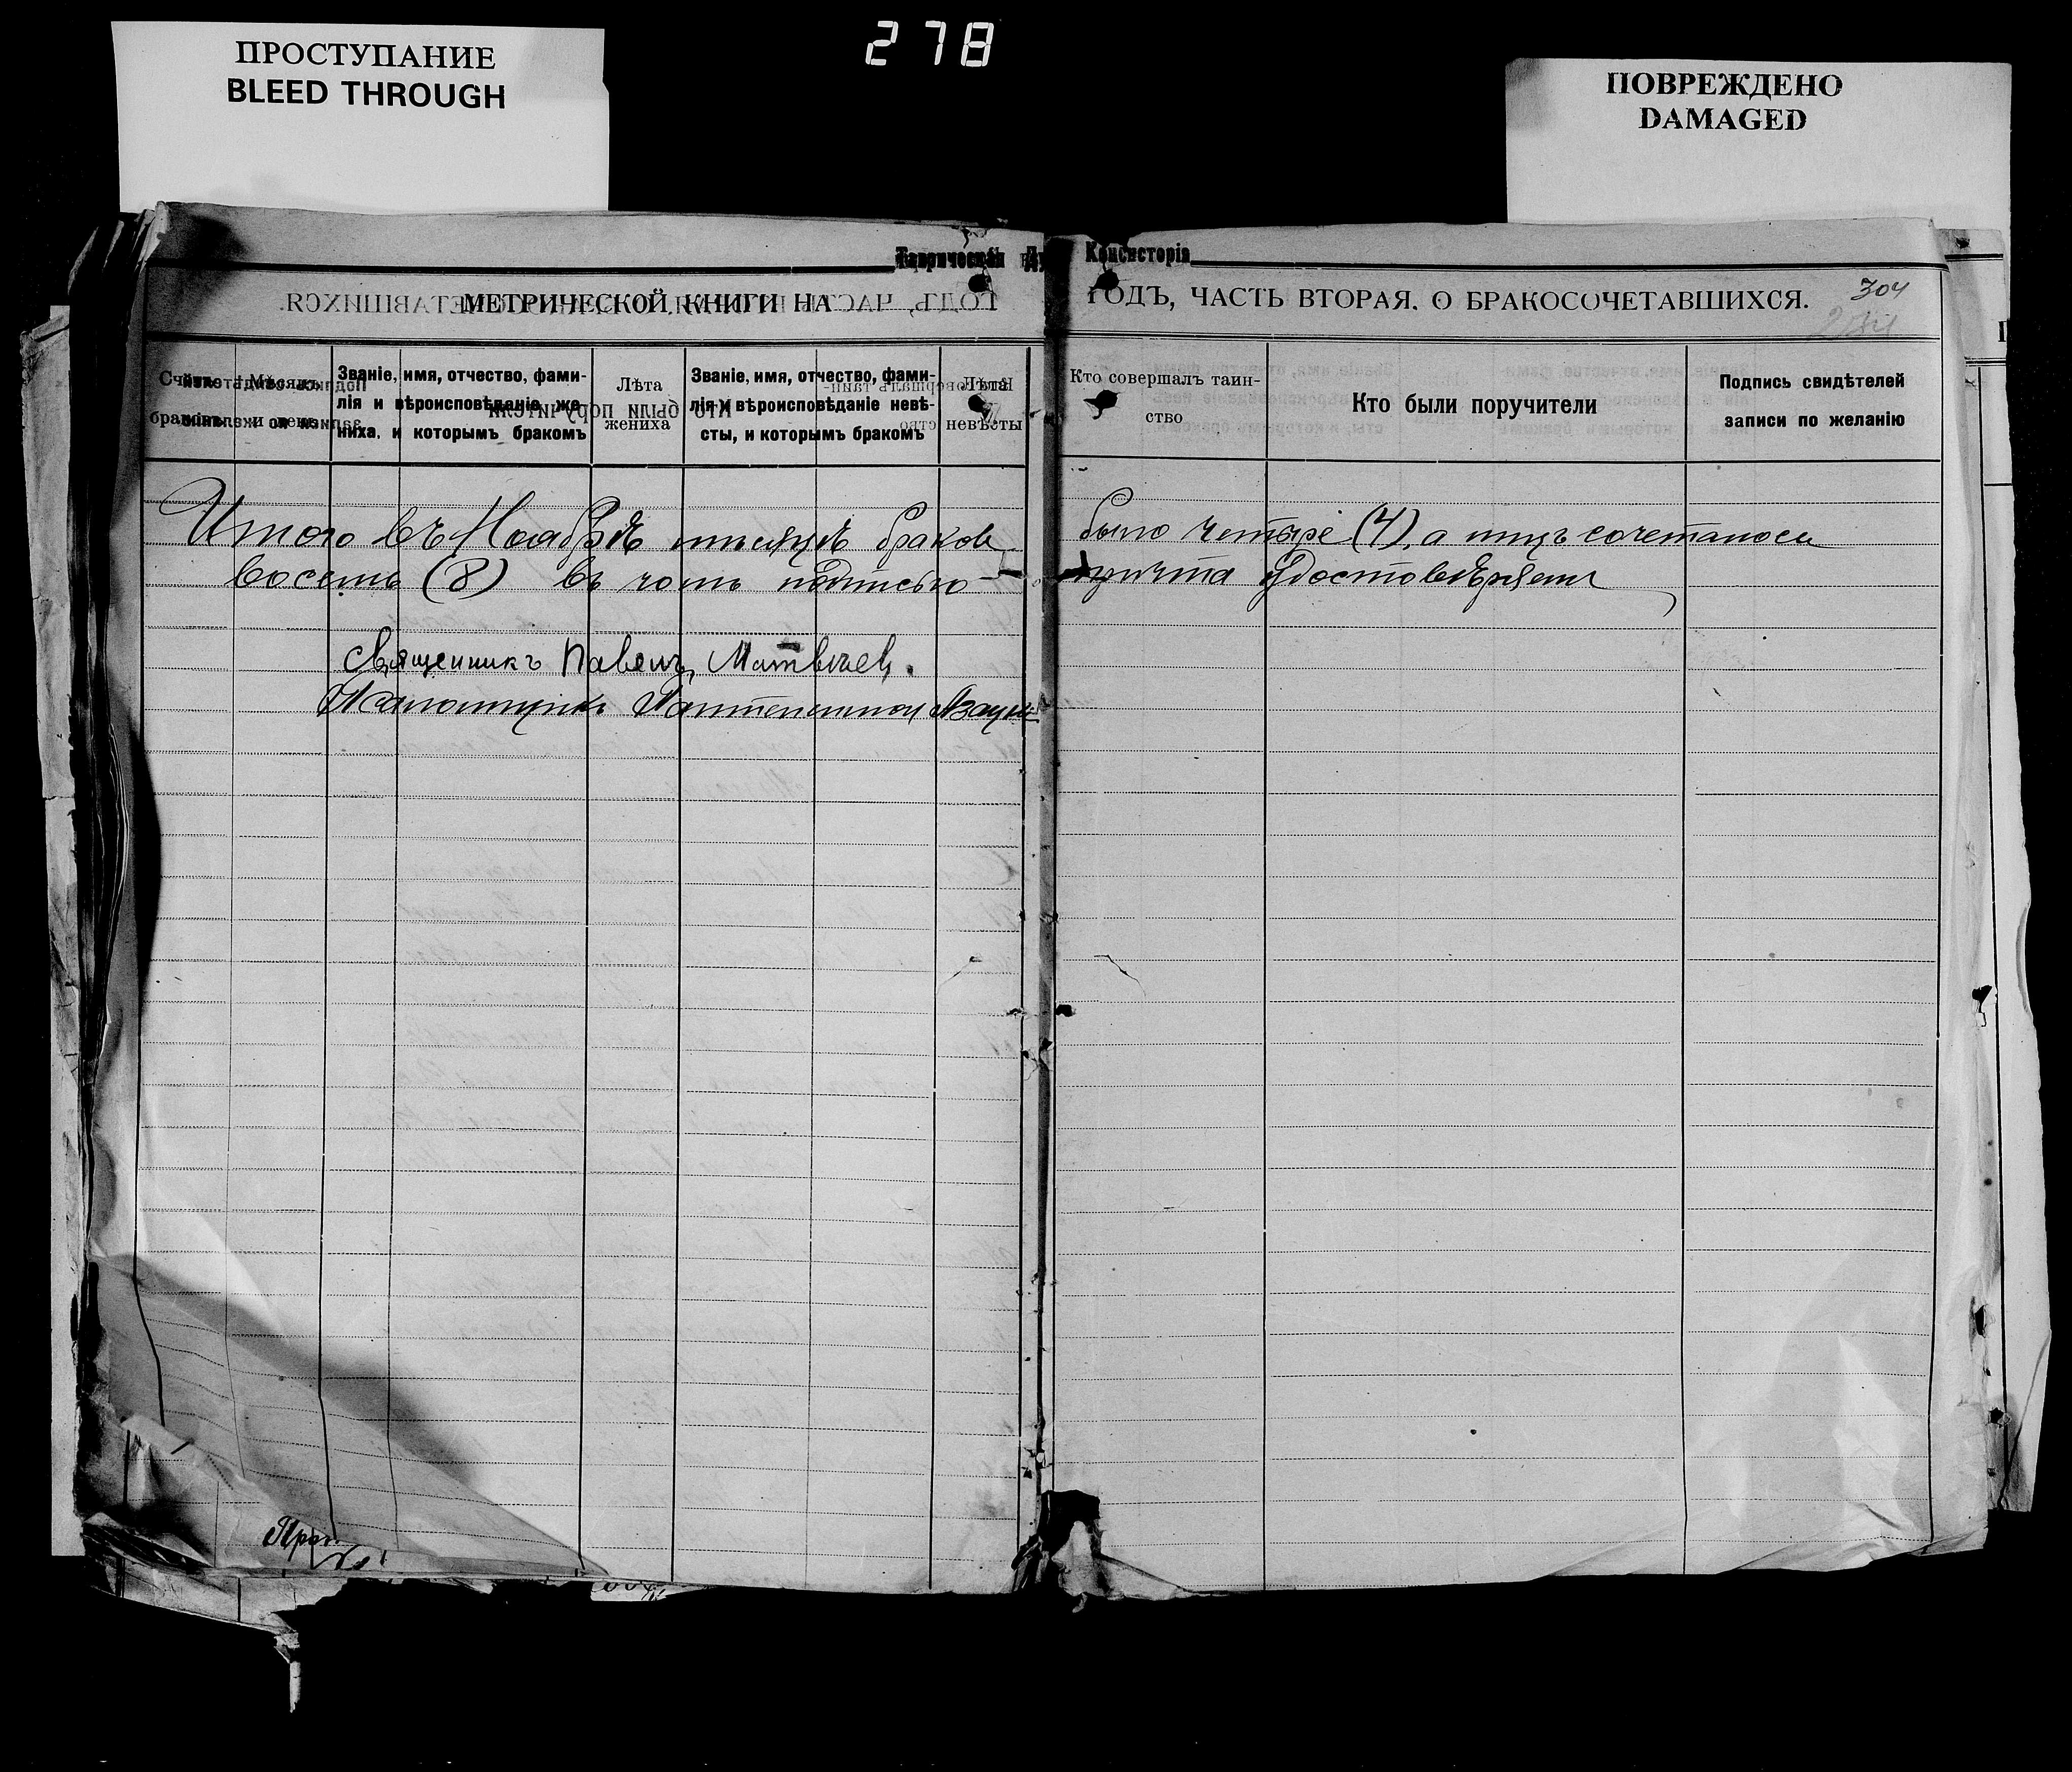 ПРОСТУПАНИЕ
BLEED THROUGH
278
ПОВРЕЖДЕНО
DAMAGED
Таврической Ду Консисторіи
304
МЕТРИЧЕСКОЙ КНИГИ НА ГОДЪ, ЧАСТЬ ВТОРАЯ. О БРАКОСОЧЕТАВШИХСЯ.
Званіе, имя, отчество, фами-
лія и вѣроисповѣданіе же-
ниха, и которымъ бракомъ
Лѣта
жениха
Званіе, имя, отчество, фами-
лія и вѣроисповѣданіе невѣ-
сты, и которымъ бракомъ
Лѣта
невѣсты
Кто совершалъ таин-
ство
Кто были поручители
Подпись свидѣтелей
записи по желанію
Итого въ Ноябрѣ мѣсяцѣ браковъ было четыре (4), а лицъ сочеталось
восемь (8) въ чомъ подписью причта удостовѣряем
Священникъ Павелъ Матвѣевъ.
Псаломщикъ Пантелеимон